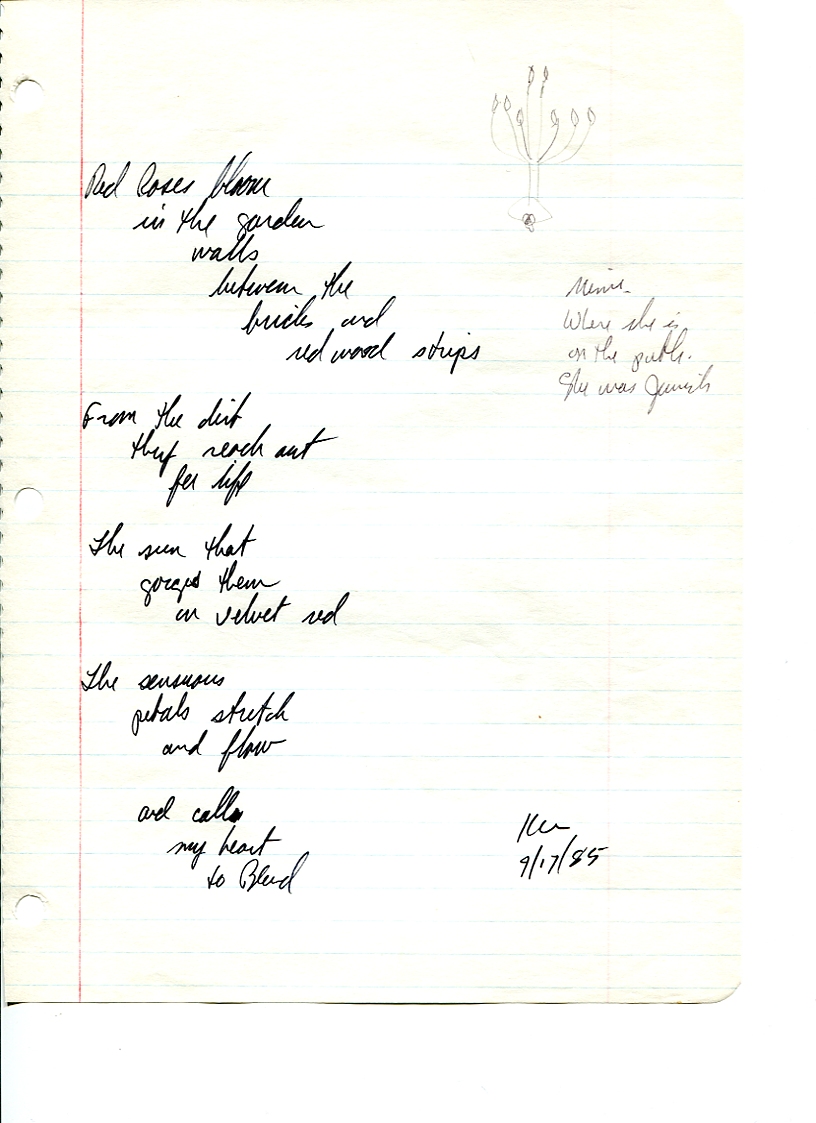 Red Roses bloom
in the garden
walls
between the
bricks and
redwood strips
Where she is
on the path.
She was Jewish
From the dirt
they reach out
for life
The sun that
gorges them
in velvet red
The sensuous
petals stretch
and flow
and calls
my heart
to Bleed
Ken
9/17/85